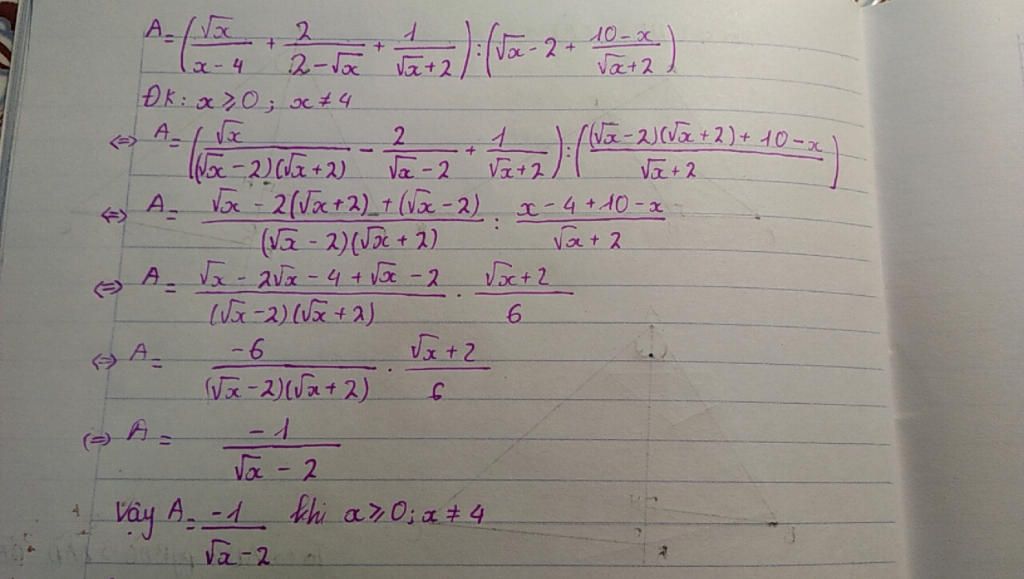 A = (√x / (x - 4) + 2 / (2 - √x) + 1 / (√x + 2)) : (√x - 2 + (10 - x) / (√x + 2))
ĐK: x ⩾ 0 ; x ≠ 4
⇔ A = (√x / ((√x - 2)(√x + 2)) - 2 / (√x - 2) + 1 / (√x + 2)) : (((√x - 2)(√x + 2) + 10 - x) / (√x + 2))
⇔ A = (√x - 2(√x + 2) + (√x - 2)) / ((√x - 2)(√x + 2)) : (x - 4 + 10 - x) / (√x + 2)
⇔ A = (√x - 2√x - 4 + √x - 2) / ((√x - 2)(√x + 2)) . (√x + 2) / 6
⇔ A = -6 / ((√x - 2)(√x + 2)) . (√x + 2) / 6
⇔ A = -1 / (√x - 2)
Vậy A = -1 / (√x - 2) khi x ⩾ 0 ; x ≠ 4